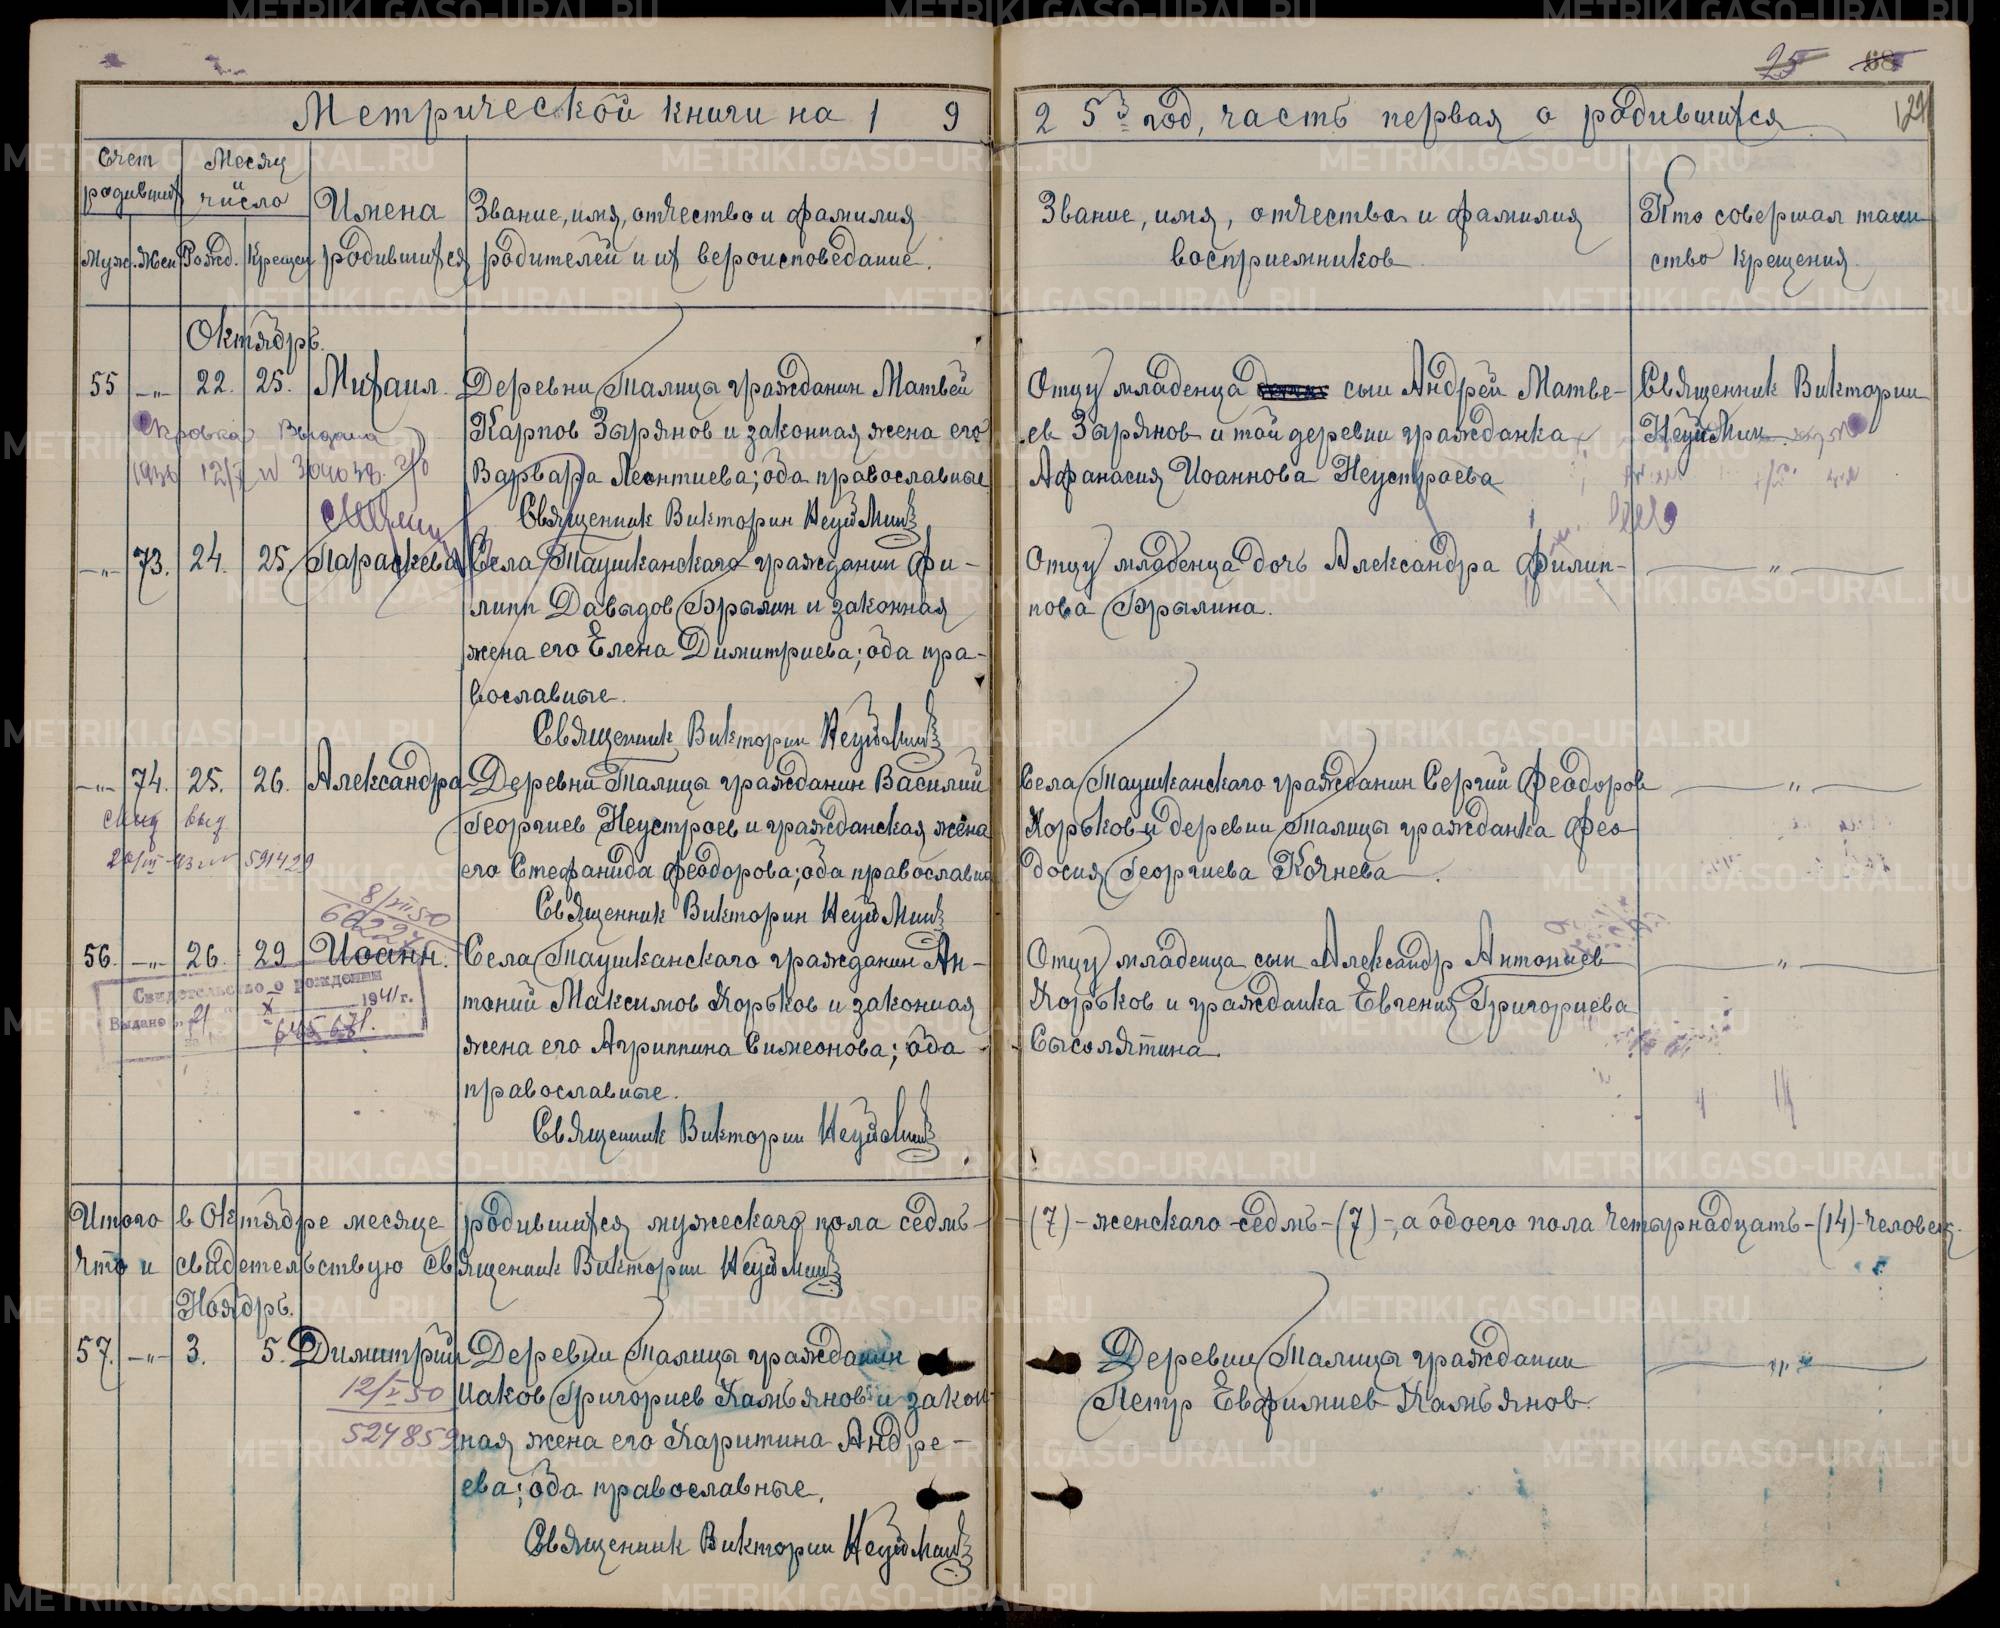 25 68
Метрической книги на 1 9 2 5й год, часть первая о родившихся.
121
Счет родивших
Месяц и число
Имена родившихся
Звание, имя, отчество и фамилия
родителей и их вероисповедание.
Звание, имя, отчество и фамилия
восприемников
Кто совершал таин
ство крещения.
Муж. Жен Рожд. Крещен
Октябрь.
55 -„- 22. 25. Михаил.
Деревни Талицы гражданин Матвей
Карпов Зырянов и законная жена его
Варвара Леонтиева; оба православные
Священник Викторин Неуймин
Отцу младенца сын Андрей Матве-
ев Зырянов и той деревни гражданка
Афанасия Иоаннова Неустроева
Священник Викторин
Неуймин
выдана
-„- 73. 24. 25 Параскева
Села Таушканскаго гражданин Фи-
липп Давыдов Брылин и законная
жена его Елена Димитриева; оба пра-
вославные.
Священник Викторин Неуймин
Отцу младенца дочь Александра Филип-
пова Брылина.
„
-„- 74. 25. 26. Александра
Деревни Талицы гражданин Василий
Георгиев Неустроев и гражданская жена
его Стефанида Феодорова; оба православн
Священник Викторин Неуймин
Села Таушканскаго гражданин Сергий Феодоров
Хорьков и деревни Талицы гражданка Фео
досия Георгиева Кочнева
„
выд
591429
8/VII 50
56. -„- 26. 29 Иоанн.
Села Таушканскаго гражданин Ан-
тоний Максимов Хорьков и законная
жена его Агриппина Симеонова; оба
православные.
Священник Викторин Неуймин
Отцу младенца сын Александр Антониев
Хорьков и гражданка Евгения Григориева
Сысолятина.
„
Свидетельство о рождении
Выдано „21 X 1941 г.
645671.
Итого в Октябре месяце родившихся мужескаго пола седмь-(7)-женскаго-седмь-(7)-, а обоего пола четырнадцать-(14)-человек.
Что и свидетельствую священник Викторин Неуймин
Ноябрь.
57. -„- 3. 5. Димитрий
Деревни Талицы гражданин
Иаков Григориев Хамьянов и закон-
ная жена его Харитина Андре-
ева; оба православные.
Священник Викторин Неуймин
Деревни Талицы гражданин
Петр Евфимиев Хамьянов.
„
12/V 50
524859
METRIKI.GASO-URAL.RU